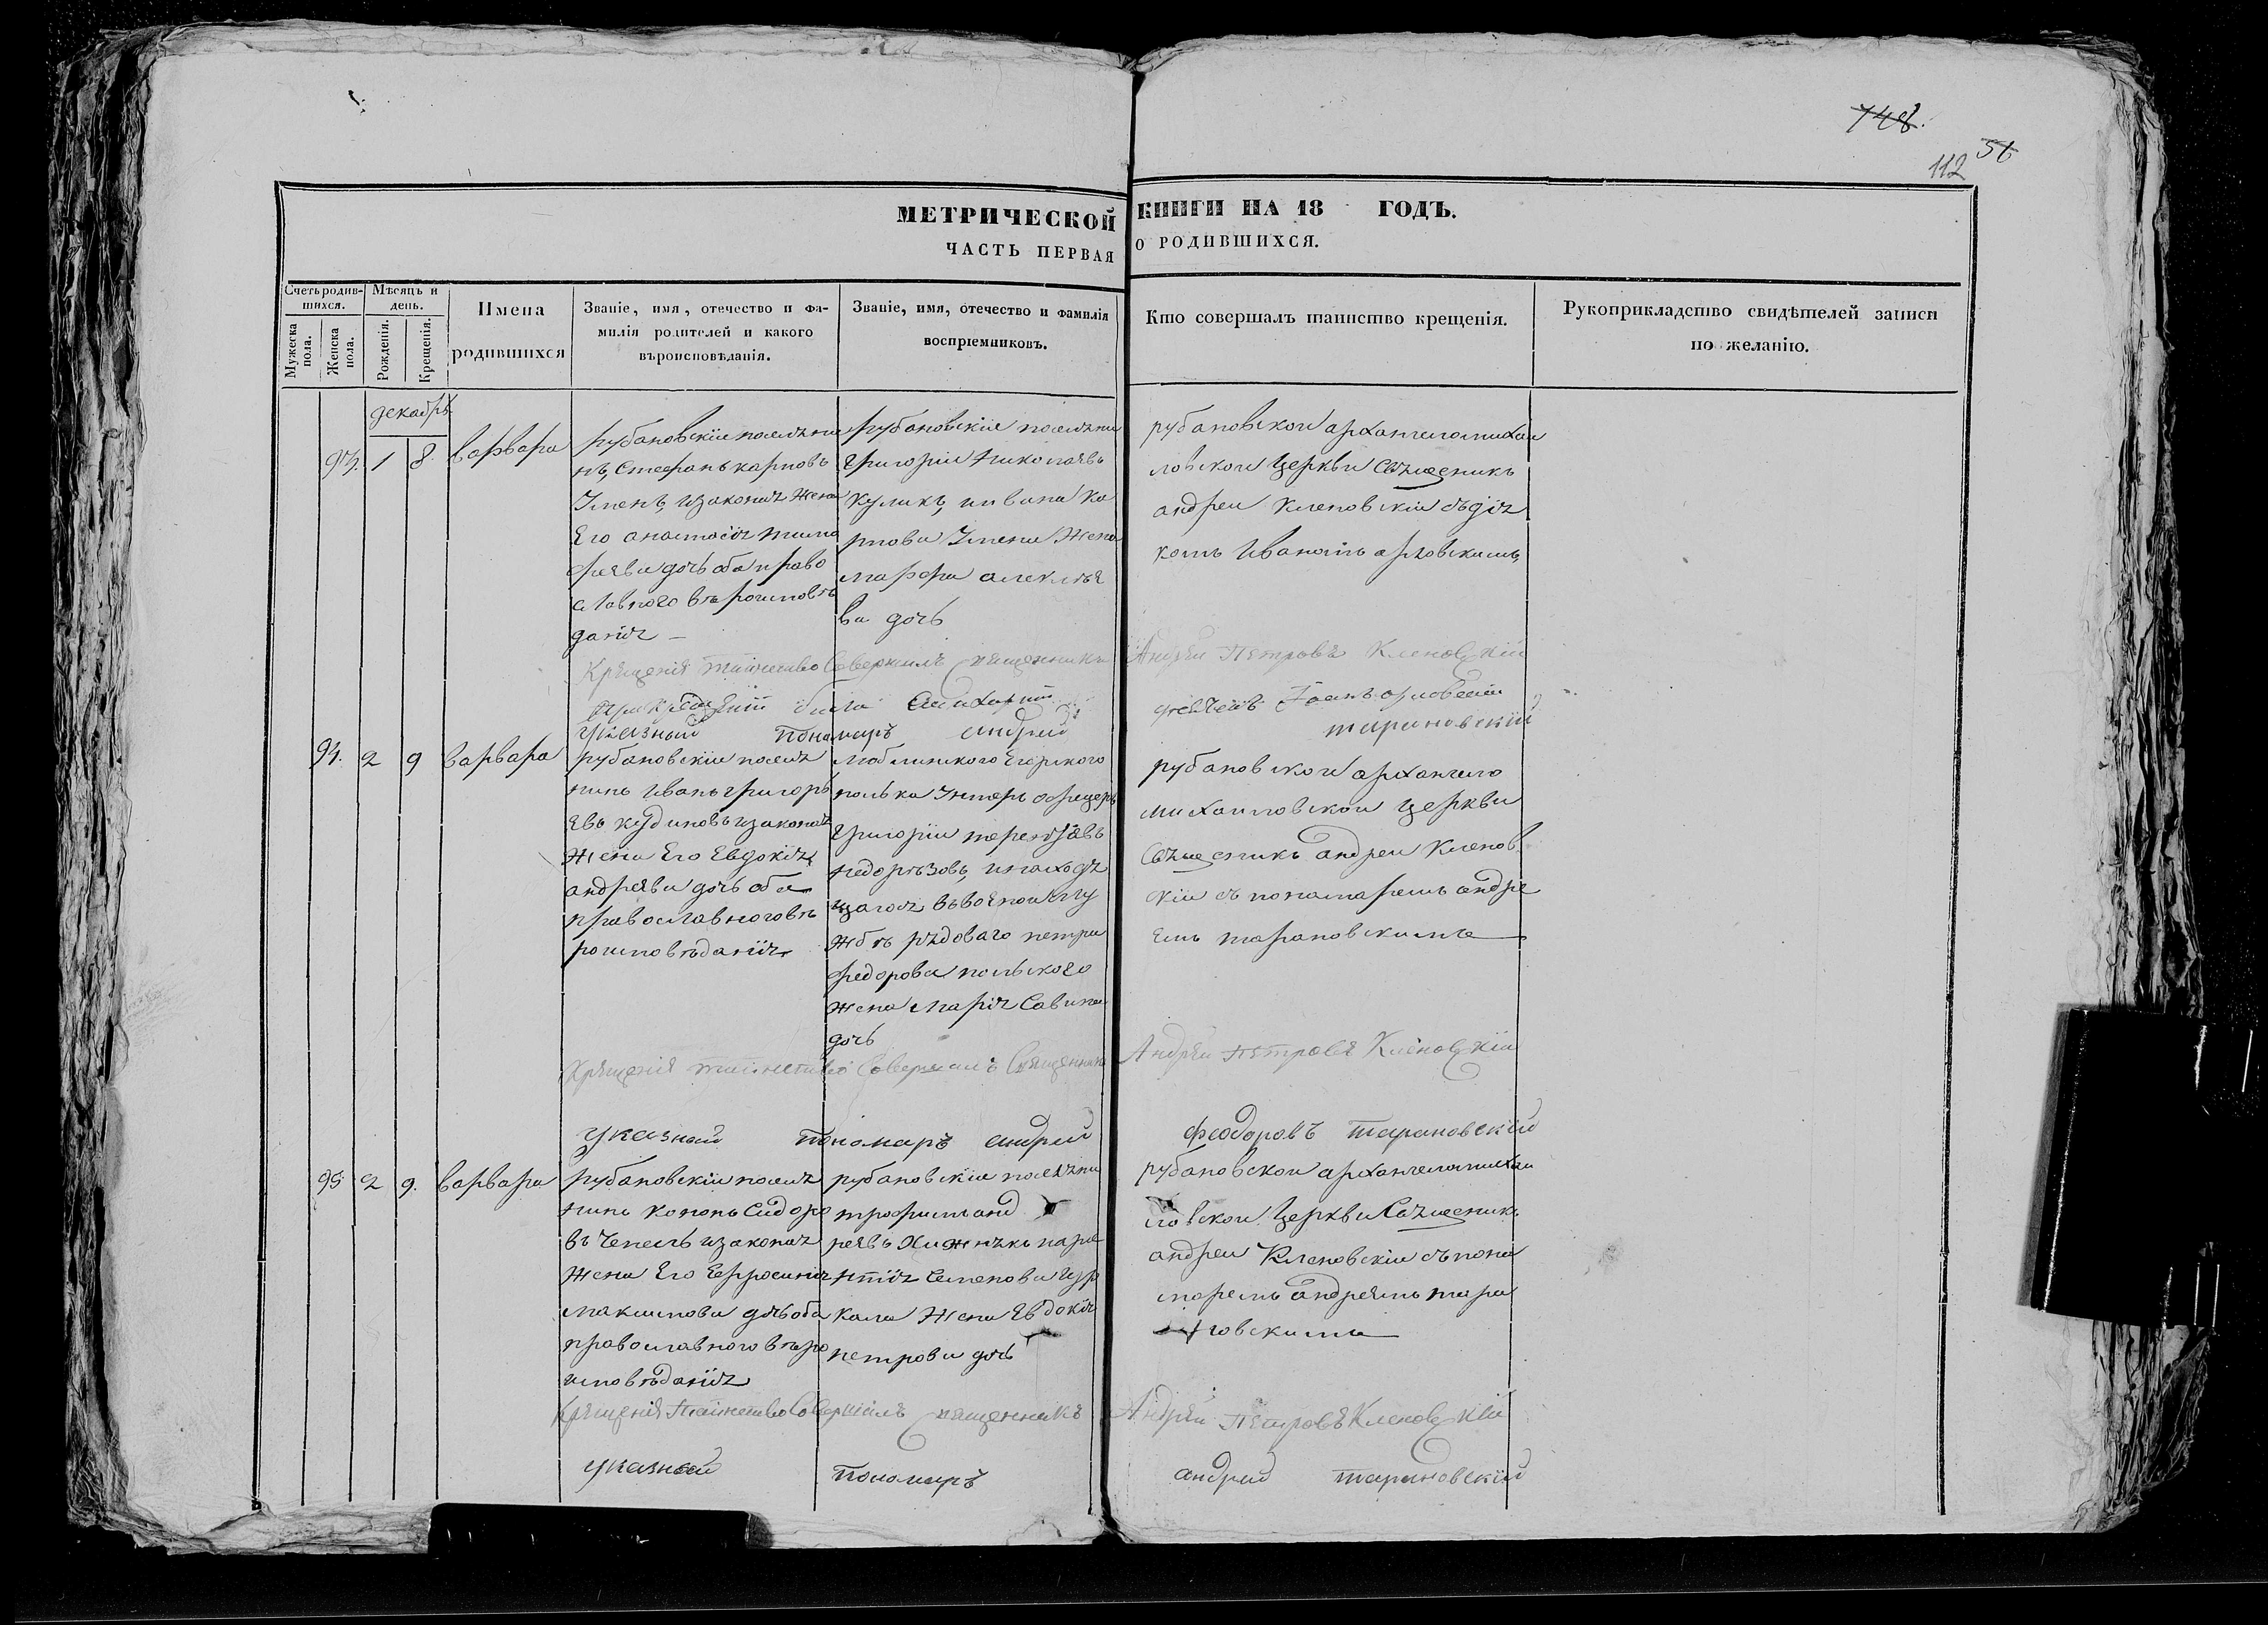 748.
112 56
МЕТРИЧЕСКОЙ КНИГИ НА 18 ГОДЪ.
ЧАСТЬ ПЕРВАЯ О РОДИВШИХСЯ.
Счетъ родив-
шихся.
Мужеска
пола.
Женска
пола.
Мѣсяцъ и
день.
Рожденія.
Крещенія.
Имена
родившихся
Званіе, имя, отечество и фа-
милія родителей и какого
вѣроисповѣданія.
Званіе, имя, отечество и фамилія
воспріемниковъ.
Кто совершалъ таинство крещенія.
Рукоприкладство свидѣтелей записи
по желанію.
декабрь
93. 1 8. варвара
рубановскіи поселяни
нъ, Стефанъ карповъ
законая жена
Его анастасія тимо
феява дочь оба право
славного вѣроисповѣ
данія
рубановскіи поселяни
Григоріи николаявъ
куликъ, ка
рпова жена
марфа алексѣя
ва дочь
рубановскои архангеломихаи
ловскои Церкви Священикъ
андреи Кленовскіи съ дія
комъ Иваномъ орловскимъ,
Крещенія таинство Совершилъ священникъ Андрей Петровъ Кленовскій
Указный пономарь андрей тарановскій
94. 2 9 варвара
рубановскіи поселя
нинъ Иванъ григорь
явъ кудиновъ законая
жена Его Евдокія
андреява дочь оба
православного вѣ
роисповѣданія
полька Унтеръ офицеръ
Григоріи терентьявъ
недорѣзовъ, и находя
щагося въ военои слу
жбѣ рядоваго петра
федорова польского
жена марія Савина
дочь
рубановскои архангело
михаиловскои церкви
Свящеснникъ андреи Кленов
скіи съ понамаремъ андре
емъ тарановскимъ
Крещенія таинство Совершилъ Священникъ Андрей Петровъ Кленовскій
указный пономарь андрей Феодоровъ тарановскій
95. 2 9. варвара
рубановскіи поселя
нинъ кононъ Сидоро
въ Чепель законая
жена Его Ефросинія
максимова дочь оба
православного вѣро
исповѣданія
рубановскіи поселяни
трофимъ анд
реявъ Хижнякъ
Семенова
кала жена явдокія
петрова дочь
рубановскои архангеломихаи
ловскои Церкви Священикъ
андреи Кленовскіи съ пона
маремъ андреямъ тара
новскимъ
Крещенія таинство Совершилъ священникъ Андрей Петровъ Кленовскій
указный пономарь андрей тарановскій